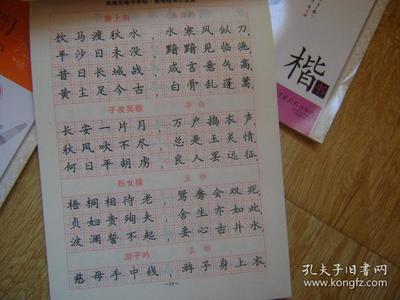 塞上曲
饮马渡秋水，水寒风似刀。
平沙日未没，黯黯见临洮。
昔日长城战，咸言意气高。
黄尘足今古，白骨乱蓬蒿。
子夜吴歌 李白
长安一片月，万户捣衣声。
秋风吹不尽，总是玉关情。
何日平胡虏，良人罢远征。
烈女操 孟郊
梧桐相待老，鸳鸯会双死。
贞妇贵殉夫，舍生亦如此。
波澜誓不起，妾心古井水。
游子吟 孟郊
慈母手中线，游子身上衣。
楷
孔夫子旧书网
www.kongfz.com